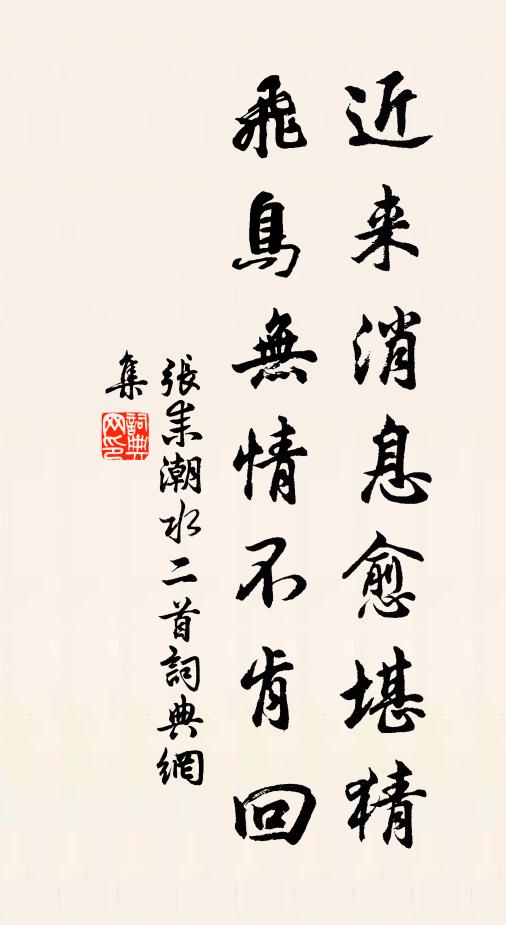 近来消息愈堪猜
飛鳥無情不肯回
張耒潮水二首詞典網
集
詞典網印